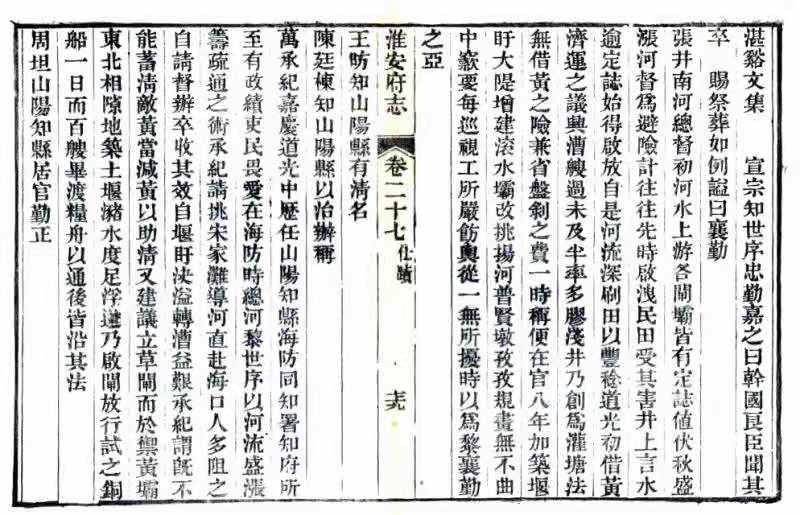 湛谿文集　宣宗知世序忠勤嘉之曰幹國良臣聞其
卒　賜祭葬如例諡曰襄勤
張井南河總督初河水上游各閘壩皆有定誌值伏秋盛
漲河督為避險計往往先時啟洩民田受其害井上言水
逾定誌始得啟放自是河流深刷田以豐稔道光初借黃
濟運之議興漕艘過未及半率多膠淺井乃創為灌塘法
無借黃之險兼省盤剝之費一時稱便在官八年加築堰
盱大隄增建滾水壩改挑揚河普賢墩孜孜規畫無不曲
中窾要每巡視工所嚴飭輿從一無所擾時以為黎襄勤
之亞
淮安府志　卷二十七　仕蹟
王昉知山陽縣有清名
陳廷棟知山陽縣以治辦稱
萬承紀嘉慶道光中歷任山陽知縣海防同知署知府所
至有政績吏民畏愛在海防時總河黎世序以河流盛漲
籌疏通之術承紀請挑宋家灘導河直赴海口人多阻之
自請督辦卒收其效自堰盱決溢轉漕益艱承紀謂既不
能蓄清敵黃當減黃以助清又建議立草閘而於禦黃壩
東北相隙地築土堰瀦水度足浮送乃啟閘放行試之銅
船一日而百艘畢渡糧舟以通後皆沿其法
周坦山陽知縣居官勤正